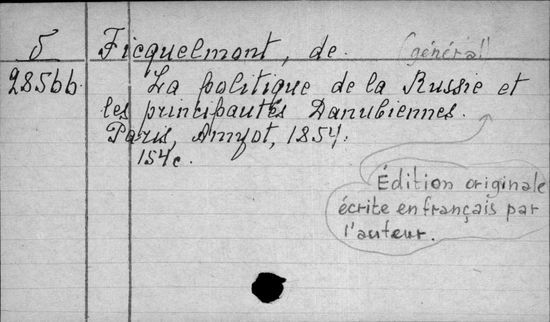 б Ficquelmont, de. (général)
28566. La politique de la Russie et
les principautés Danubiennes.
Paris, Amyot, 1854.
154 c.
Édition originale
écrite en français par
l'auteur.